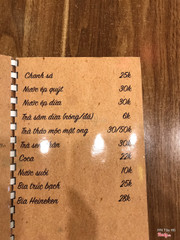 Chanh sả 25k
Nước ép quýt 30k
Nước ép dứa 30k
Trà sâm dứa (nóng/đá) 6k
Trà thảo mộc mật ong 30/50k
Trà sen 30k
Coca 22k
Nước suối 10k
Bia trúc bạch 25k
Bia Heineken 28k